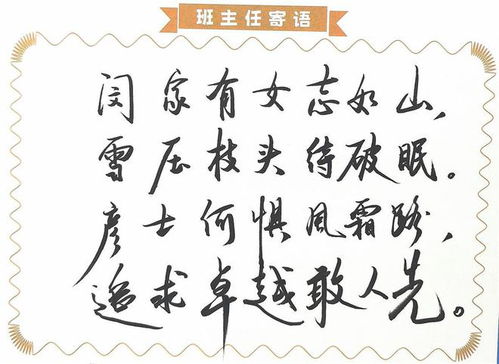 班主任寄语
闵家有女志如山，
雪压枝头待破眠。
彦士何惧风霜路，
追求卓越敢人先。